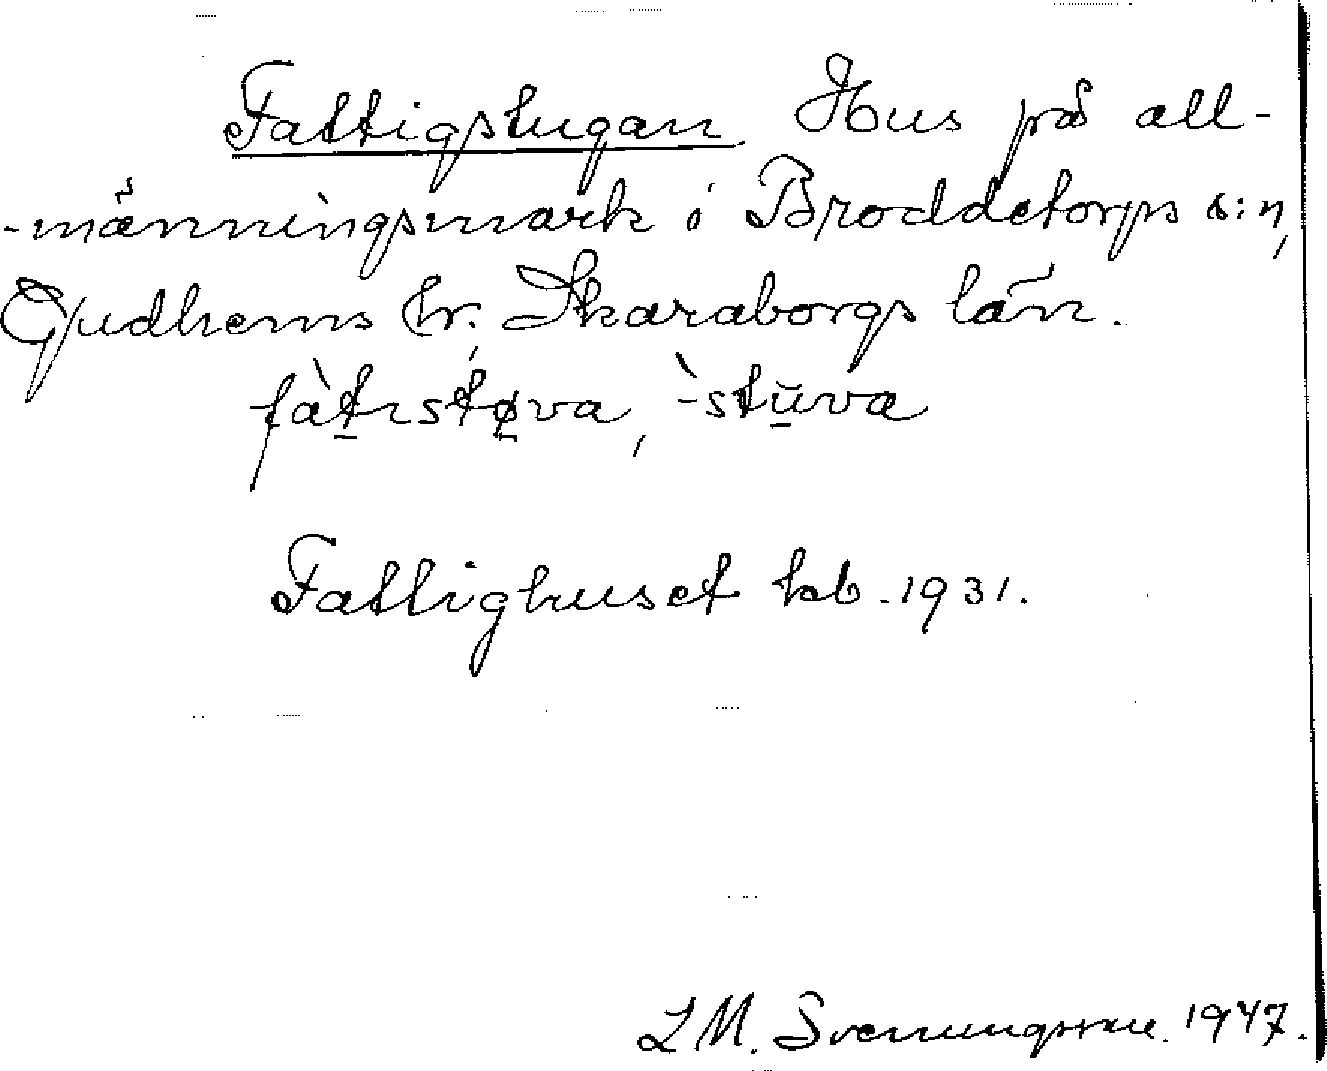 Fattigstugan Hus på all-
-männingsmark i Broddetorps s:n,
Gudhems hr. Skaraborgs län.
fàtɩstøva, -̀stŭva
Fattighuset kb. 1931.
L M. Svenungsson. 1947.